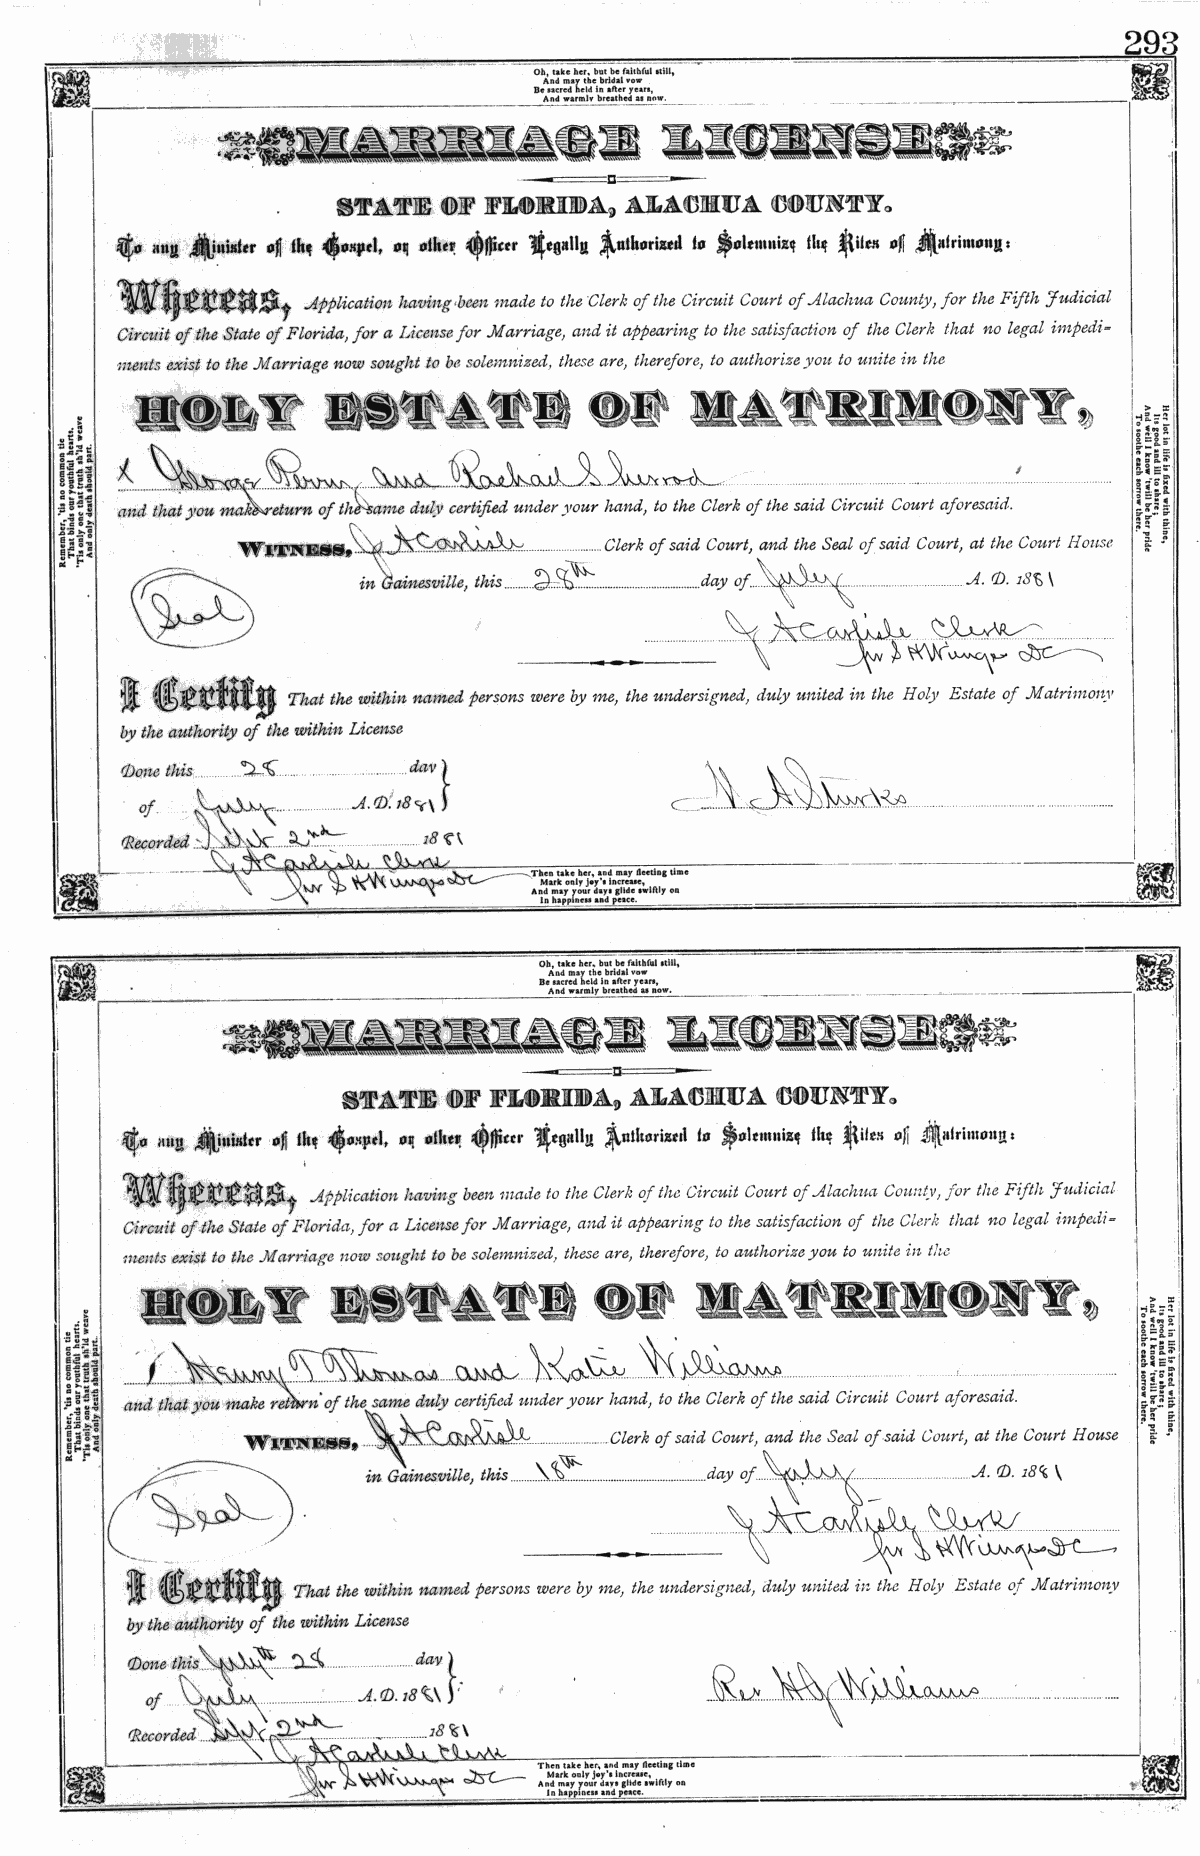 293
Oh, take her, but be faithful still,
And may the bridal vow
Be sacred held in after years,
And warmly breathed as now.
MARRIAGE LICENSE
STATE OF FLORIDA, ALACHUA COUNTY.
To any Minister of the Gospel, or other Officer Legally Authorized to Solemnize the Rites of Matrimony:
Whereas, Application having been made to the Clerk of the Circuit Court of Alachua County, for the Fifth Judicial
Circuit of the State of Florida, for a License for Marriage, and it appearing to the satisfaction of the Clerk that no legal impedi=
ments exist to the Marriage now sought to be solemnized, these are, therefore, to authorize you to unite in the
HOLY ESTATE OF MATRIMONY,
x George Perry and Rachail Sherrod
and that you make return of the same duly certified under your hand, to the Clerk of the said Circuit Court aforesaid.
WITNESS, J A Carlisle Clerk of said Court, and the Seal of said Court, at the Court House
in Gainesville, this 28th day of July A. D. 1881
Seal
J A Carlisle Clerk
pr S H Wienges DC
I Certify That the within named persons were by me, the undersigned, duly united in the Holy Estate of Matrimony
by the authority of the within License
Done this 28 day
of July A.D. 1881
A Sturks
Recorded Sept 2nd 1881
J A Carlisle Clerk
pr S H Wienges DC
Then take her, and may fleeting time
Mark only joy's increase,
And may your days glide swiftly on
In happiness and peace.
Remember, 'tis no common tie
That binds our youthful hearts,
'Tis only one that truth sh'ld weave
And only death should part.
Her lot in life is fixed with thine,
Its good and ill to share;
And well I know 'twill be her pride
To soothe each sorrow there.
Oh, take her, but be faithful still,
And may the bridal vow
Be sacred held in after years,
And warmly breathed as now.
MARRIAGE LICENSE
STATE OF FLORIDA, ALACHUA COUNTY.
To any Minister of the Gospel, or other Officer Legally Authorized to Solemnize the Rites of Matrimony:
Whereas, Application having been made to the Clerk of the Circuit Court of Alachua County, for the Fifth Judicial
Circuit of the State of Florida, for a License for Marriage, and it appearing to the satisfaction of the Clerk that no legal impedi=
ments exist to the Marriage now sought to be solemnized, these are, therefore, to authorize you to unite in the
HOLY ESTATE OF MATRIMONY,
Henry T Thomas and Katie Williams
and that you make return of the same duly certified under your hand, to the Clerk of the said Circuit Court aforesaid.
WITNESS, J A Carlisle Clerk of said Court, and the Seal of said Court, at the Court House
in Gainesville, this 18th day of July A. D. 1881
Seal
J A Carlisle Clerk
pr S H Wienges DC
I Certify That the within named persons were by me, the undersigned, duly united in the Holy Estate of Matrimony
by the authority of the within License
Done this July th 28 day
of July A.D. 1881
Rev H J Williams
Recorded Sept 2nd 1881
J A Carlisle Clerk
pr S H Wienges DC
Then take her, and may fleeting time
Mark only joy's increase,
And may your days glide swiftly on
In happiness and peace.
Remember, 'tis no common tie
That binds our youthful hearts,
'Tis only one that truth sh'ld weave
And only death should part.
Her lot in life is fixed with thine,
Its good and ill to share;
And well I know 'twill be her pride
To soothe each sorrow there.